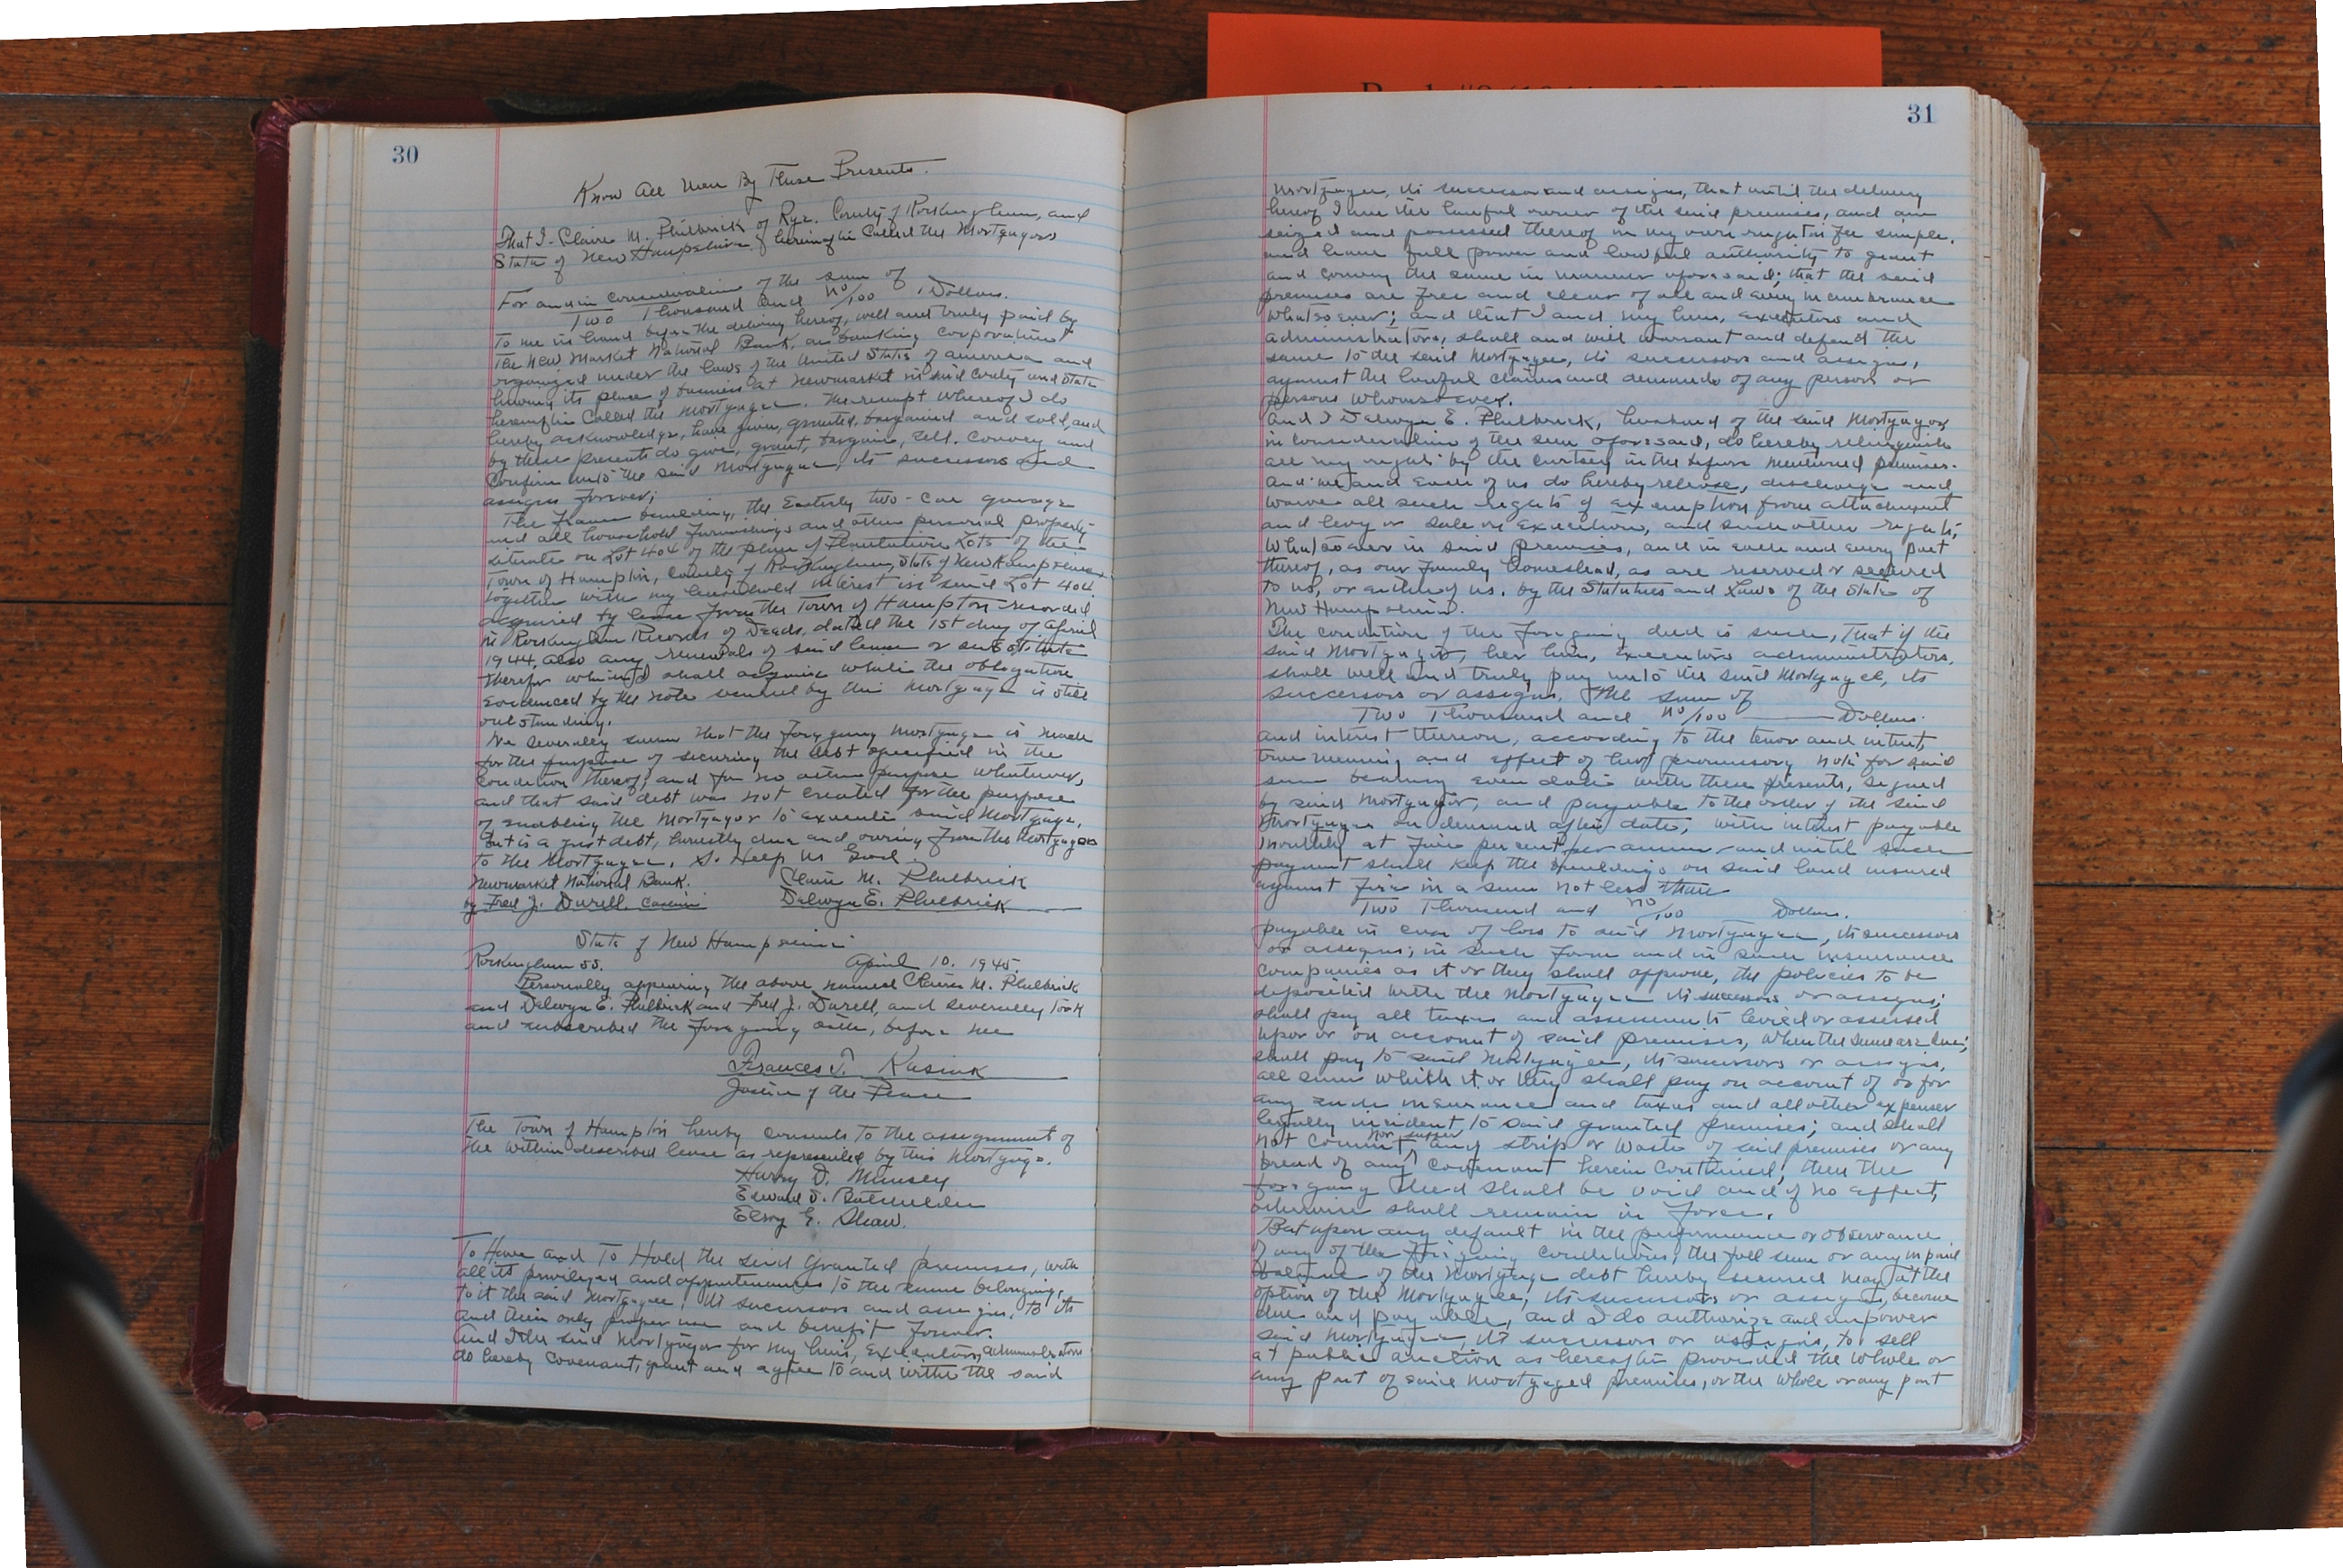 30
Know All Men By These Presents.
That I- Claire M. Philbrick of Rye. County of Rockingham, and
State of New Hampshire, hereinafter called the Mortgagor
For and in consideration of the sum of
Two Thousand and no/100 Dollars.
To me in hand before the delivery hereof, well and truly paid by
The New Market National Bank, a banking corporation
organized under the laws of the United States of america and
having its place of business at Newmarket in said County and State
hereinafter Called the Mortgagee. The receipt whereof I do
hereby acknowledge, have given, granted, bargained and sold, and
by these presents do give, grant, bargain, sell, convey and
Confirm unto the said Mortgagee, its successors and
assigns forever;
The frame building, the Easterly two-car garage
and all household furnishings and other personal property
situate on Lot 404 of the plan of Plantation Lots of the
Town of Hampton, County of Rockingham, State of New Hampshire
together with my leasehold interest in said Lot 404
acquired by lease from the Town of Hampton recorded
in Rockingham Records of Deeds, dated the 1st day of April
1944, also any renewals of said lease or substitute
therefor which I shall acquire while the obligation
evidenced by the note secured by this Mortgage is still
outstanding.
We severally swear that the foregoing Mortgage is made
for the purpose of securing the debt specified in the
condition thereof, and for no other purpose whatever,
and that said debt was not created for the purpose
of enabling the Mortgagor to execute said Mortgage,
but is a just debt, honestly due and owing from the Mortgagor
to the Mortgagee, So Help Us God.
Newmarket National Bank. Claire M. Philbrick
by Fred J. Durell, Cashier Delwyn E. Philbrick
State of New Hampshire
Rockingham SS. April 10. 1945.
Personally appearing the above named Claire M. Philbrick
and Delwyn E. Philbrick and Fred J. Durell, and severally took
and subscribed the foregoing oath, before me
Frances T. Kasink
Justice of the Peace
The Town of Hampton hereby consents to the assignment of
the within described lease as represented by this Mortgage.
Harry D. Munsey
Edward S. Batchelder
Elroy G. Shaw.
To Have and To Hold the said Granted premises, with
all its privileges and appurtenances to the same belonging,
to it the said Mortgagee, its successors and assigns, to its
and their only proper use and benefit forever.
And I the said Mortgagor for my heirs, executors, administrators
do hereby covenant, grant and agree to and with the said
31
Mortgagee, its successors and assigns, that until the delivery
hereof I am the lawful owner of the said premises, and am
seized and possessed thereof in my own right in fee simple,
and have full power and lawful authority to grant
and convey the same in manner aforesaid; that the said
premises are free and clear of all and every incumbrance
whatsoever; and that I and my heirs, executors and
administrators, shall and will warrant and defend the
same to the said Mortgagee, its successors and assigns,
against the lawful claims and demands of any person or
persons whomsoever.
And I Delwyn E. Philbrick, husband of the said Mortgagor,
in consideration of the sum aforesaid, do hereby relinquish
all my right by the curtesy in the before mentioned premises.
And we and each of us do hereby release, discharge and
waive all such rights of exemption from attachment
and levy or sale on execution, and such other rights,
whatsoever in said premises, and in each and every part
thereof, as our family homestead, as are reserved or secured
to us, or either of us, by the Statutes and Laws of the State of
New Hampshire.
The condition of the foregoing deed is such, That if the
said Mortgagor, her heirs, executors administrators,
shall well and truly pay unto the said Mortgagee, its
successors or assigns, The sum of
Two Thousand and no/100 Dollars.
and interest thereon, according to the tenor and intent,
true meaning and effect of her promissory note for said
sum bearing even date with these presents, signed
by said Mortgagor, and payable to the order of the said
Mortgagee on demand after date, with interest payable
monthly at five percent per annum and until such
payment shall keep the buildings on said land insured
against fire in a sum not less than
Two Thousand and no/100 Dollars.
payable in case of loss to said Mortgagee, its successors
or assigns; in such form and in such insurance
companies as it or they shall approve, the policies to be
deposited with the Mortgagee its successors or assigns;
shall pay all taxes and assessments levied or assessed
upon or on account of said premises, when the same are due;
shall pay to said Mortgagee, its successors or assigns,
all sums which it or they shall pay on account of or for
any such insurance and taxes and all other expenses
lawfully incident to said granted premises; and shall
not commit nor suffer any strip or waste of said premises or any
breach of any covenant herein contained; then the
foregoing deed shall be void and of no effect,
otherwise shall remain in force.
But upon any default in the performance or observance
of any of the foregoing conditions, the full sum or any unpaid
balance of the Mortgage debt hereby secured may at the
option of the Mortgagee, its successors or assigns, become
due and payable, and I do authorize and empower
said Mortgagee, its successors or assigns, to sell
at public auction as hereafter provided the whole or
any part of said mortgaged premises, or the whole or any part